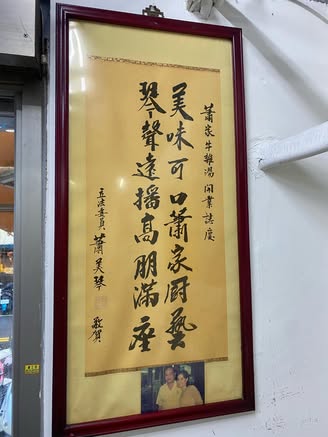 蕭家牛雜湯開業誌慶
美味可口蕭家廚藝
琴聲遠播高朋滿座
立法委員 蕭美琴 敬賀